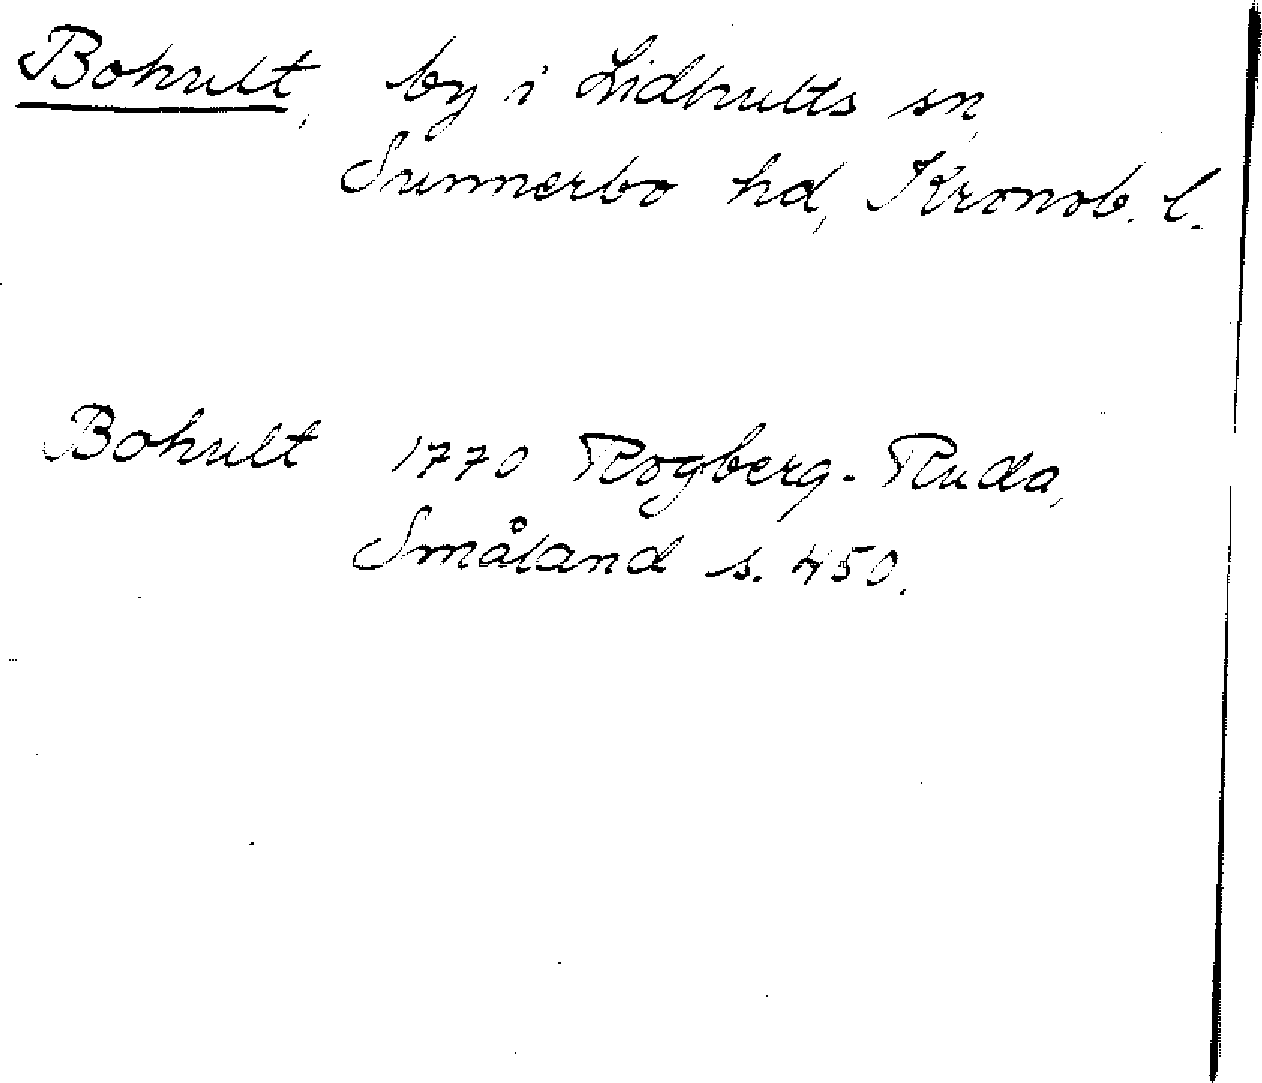 Bohult, by i Lidhults sn,
Sunnerbo hd, Kronob. l.
Bohult 1770 Rogberg-Ruda,
Småland s. 450.